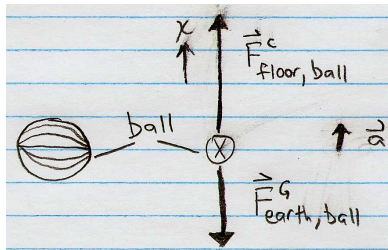 x
F⃗ᶜ floor, ball
ball
X
a⃗
F⃗ᴳ earth, ball